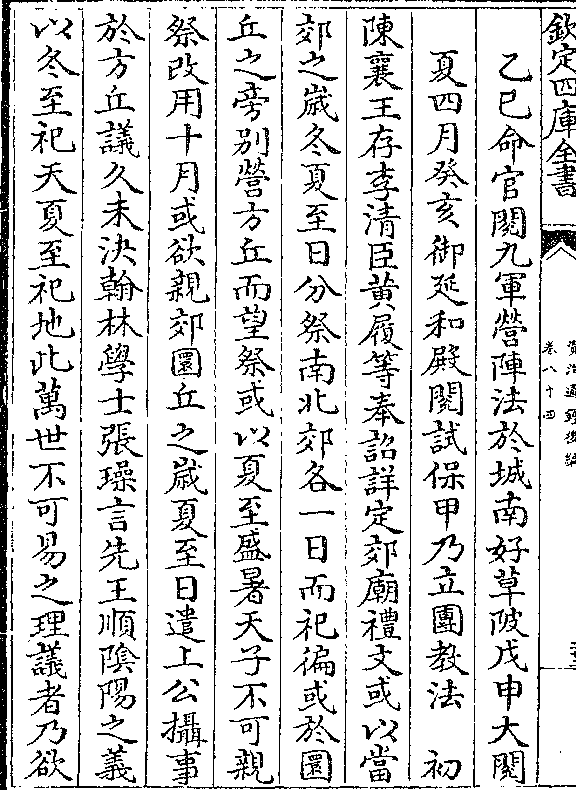 欽定四庫全書
資治通鑑後編
卷八十四
乙巳命官閱九軍營陣法於城南好草陂戊申大閱
夏四月癸亥御延和殿閱試保甲乃立團教法　初
陳襄王存李清臣黃履等奉詔詳定郊廟禮文或以當
郊之歲冬夏至日分祭南北郊各一日而祀徧或於圜
丘之旁別營方丘而望祭或以夏至盛暑天子不可親
祭改用十月或欲親郊圜丘之歲夏至日遣上公攝事
於方丘議久未決翰林學士張璪言先王順陰陽之義
以冬至祀天夏至祀地此萬世不可易之理議者乃欲